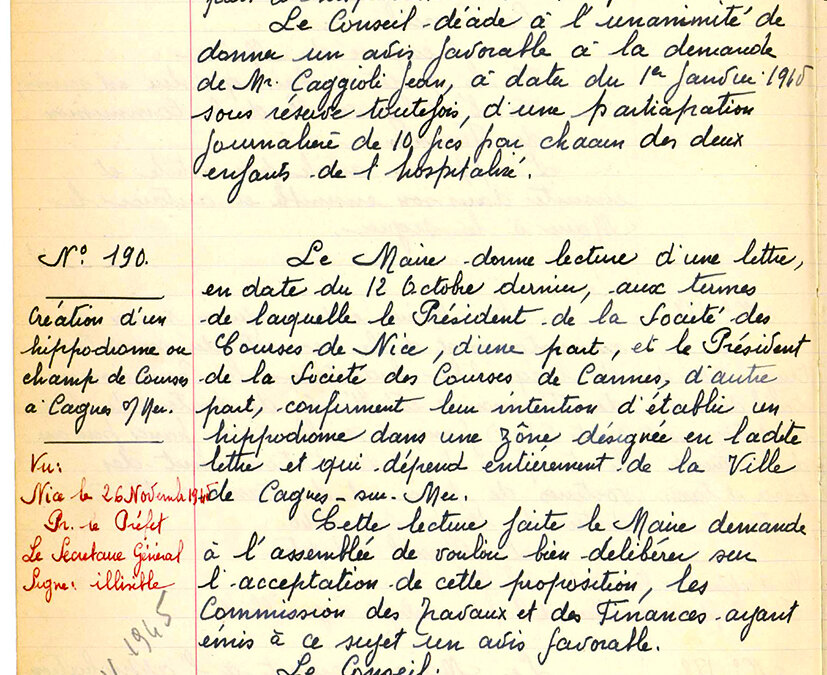 Le Conseil décide à l'unanimité de
donner un avis favorable à la demande
de Mr. Caggioli Jean, à dater du 1er Janvier 1946
sous réserve toutefois, d'une participation
journalière de 10 frcs par chacun des deux
enfants de l'hospitalisé.
N° 190.
Création d'un
hippodrome ou
champ de Courses
à Cagnes s/Mer.
Vu:
Nice le 26 Novembre 1945
Pr. le Préfet
Le Secretaire Général
Signé: illisible
1945
Le Maire donne lecture d'une lettre,
en date du 12 Octobre dernier, aux termes
de laquelle le Président de la Société des
Courses de Nice, d'une part, et le Président
de la Societé des Courses de Cannes, d'autre
part, confirment leur intention d'établir un
hippodrome dans une zône désignée en ladite
lettre et qui dépend entiérement de la Ville
de Cagnes-sur-Mer.
Cette lecture faite le Maire demande
à l'assemblée de vouloir bien delibérer sur
l'acceptation de cette proposition, les
Commission des Travaux et des Finances ayant
émis à ce sujet un avis favorable.
Le Conseil.